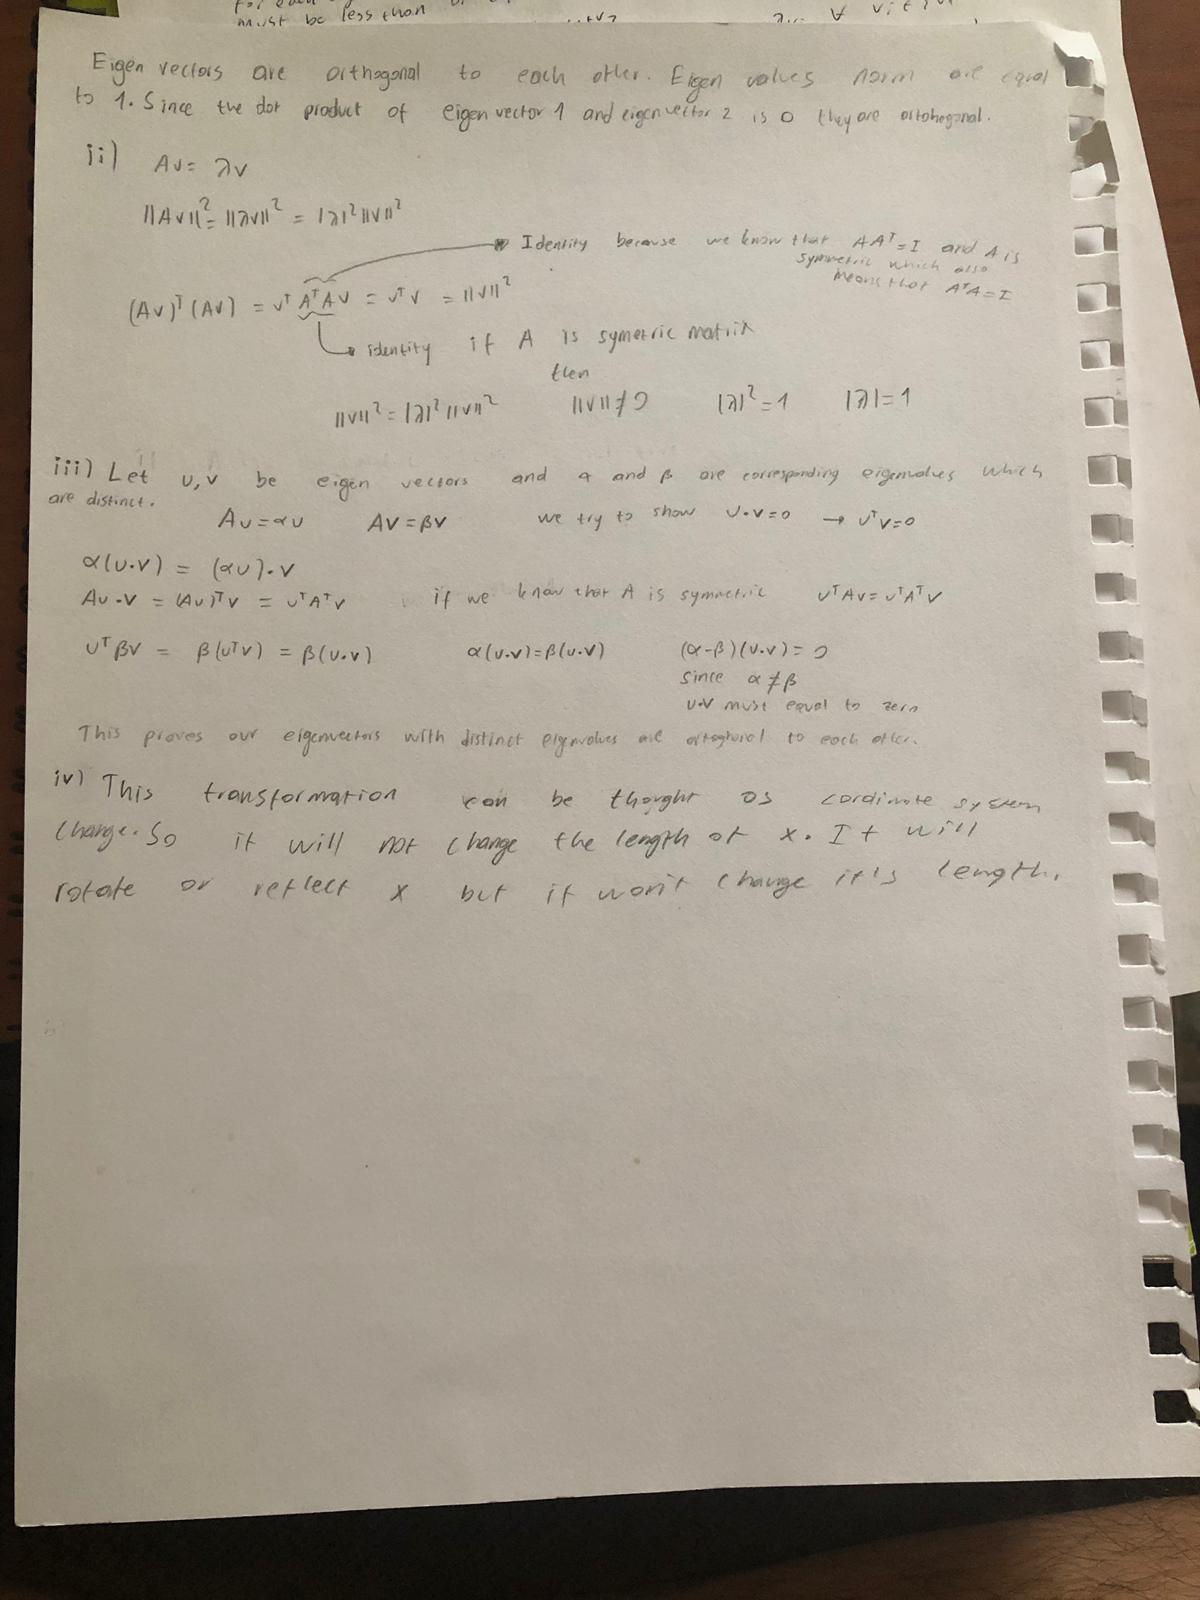 must be less than
Eigen vectors are orthogonal to each other. Eigen values norm are equal
to 1. Since the dot product of eigen vector 1 and eigenvector 2 is 0 they are ortohogonal.
ii) Av = λv
||Av||² = ||λv||² = |λ|² ||v||²
Identity because we know that AAᵀ=I and A is
symmetric which also
means that AᵀA=I
(Av)ᵀ(Av) = vᵀAᵀAv = vᵀv = ||v||²
identity if A is symetric matrix
then
||v||² = |λ|² ||v||² ||v||≠0 |λ|²=1 |λ|=1
iii) Let u,v be eigen vectors and α and β are corresponding eigenvalues which
are distinct.
Au=αu Av=βv we try to show u·v=0 → uᵀv=0
α(u·v) = (αu)·v
Au·v = (Au)ᵀv = uᵀAᵀv if we know that A is symmetric uᵀAv=uᵀAᵀv
uᵀβv = β(uᵀv) = β(u·v) α(u·v)=β(u·v) (α-β)(u·v)=0
since α≠β
u·v must equal to zero
This proves our eigenvectors with distinct eigenvalues are ortoghonal to each other.
iv) This transformation can be thought as cordinate system
change. So it will not change the length of x. It will
rotate or reflect x but it won't change it's length.